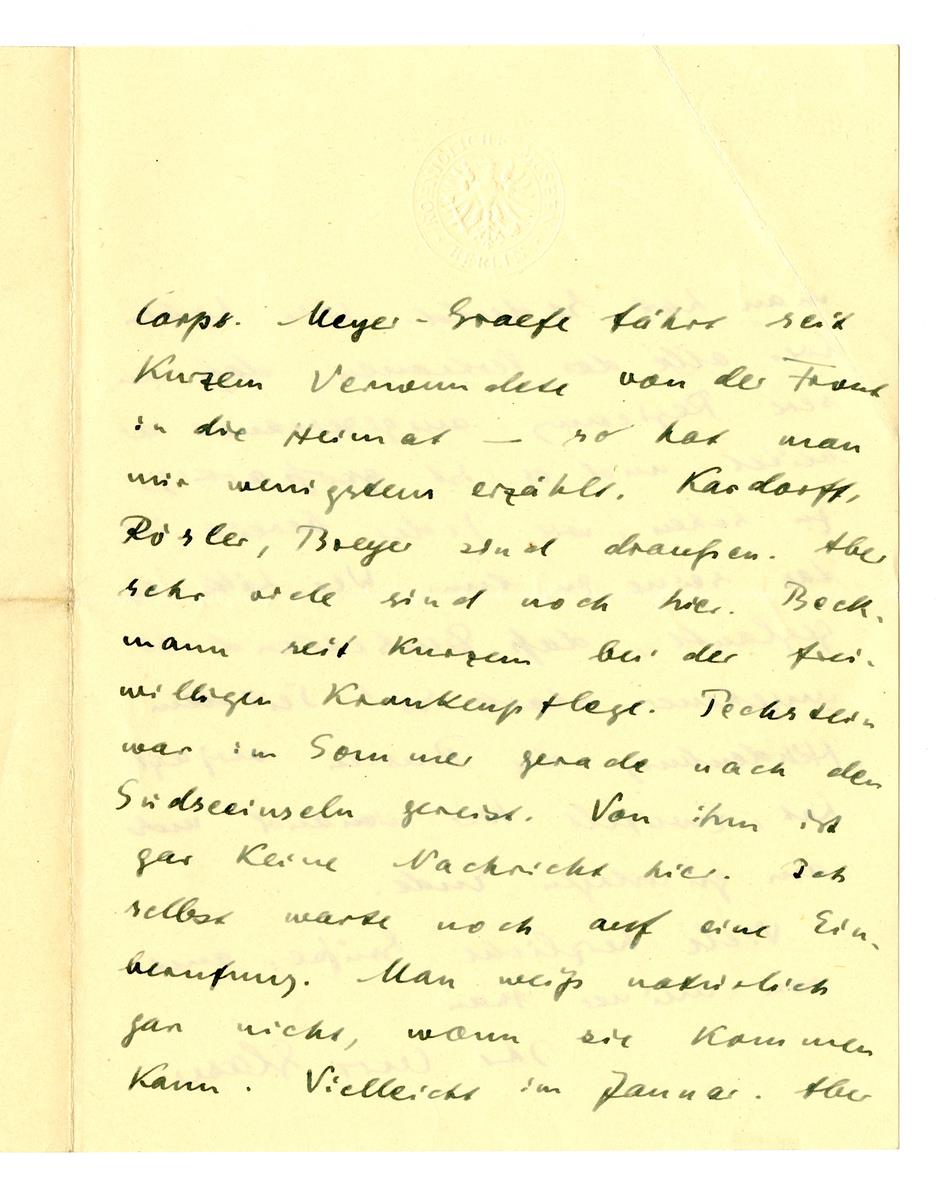 KOENIGLICHE MUSEEN
BERLIN
Corps. Meyer-Graefe fährt seit
Kurzem Verwundete von der Front
in die Heimat — so hat man
mir wenigstens erzählt. Kardorff,
Rösler, Breyer sind draußen. Aber
sehr viele sind noch hier. Beck-
mann seit Kurzem bei der frei-
willigen Krankenpflege. Pechstein
war im Sommer gerade nach den
Südseeinseln gereist. Von ihm ist
gar keine Nachricht hier. Ich
selbst warte noch auf eine Ein-
berufung. Man weiß natürlich
gar nicht, wann sie kommen
kann. Vielleicht im Januar. Aber